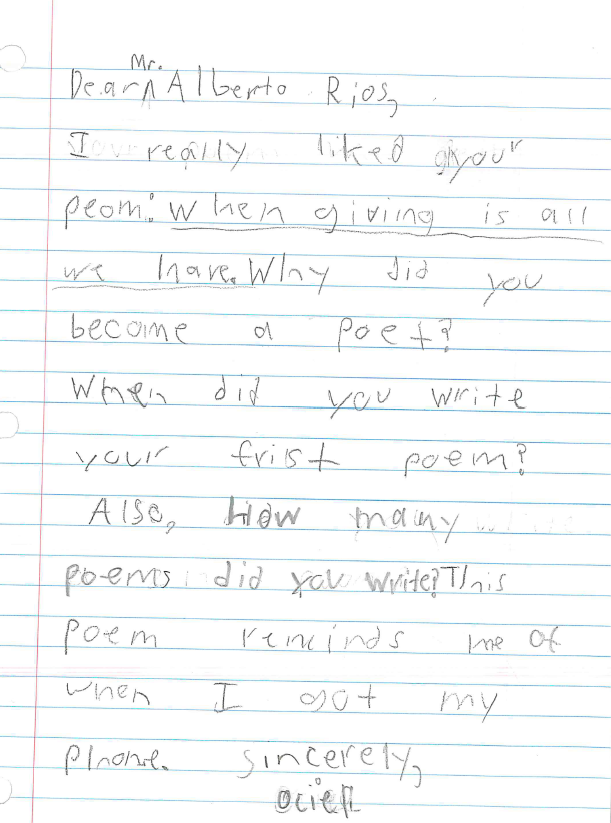 Dear Mr. Alberto Rios,
I really liked your
peom: When giving is all
we have. Why did you
become a poet?
When did you write
your frist poem?
Also, How many
poems did you write? This
poem reminds me of
when I got my
phone. sincerely,